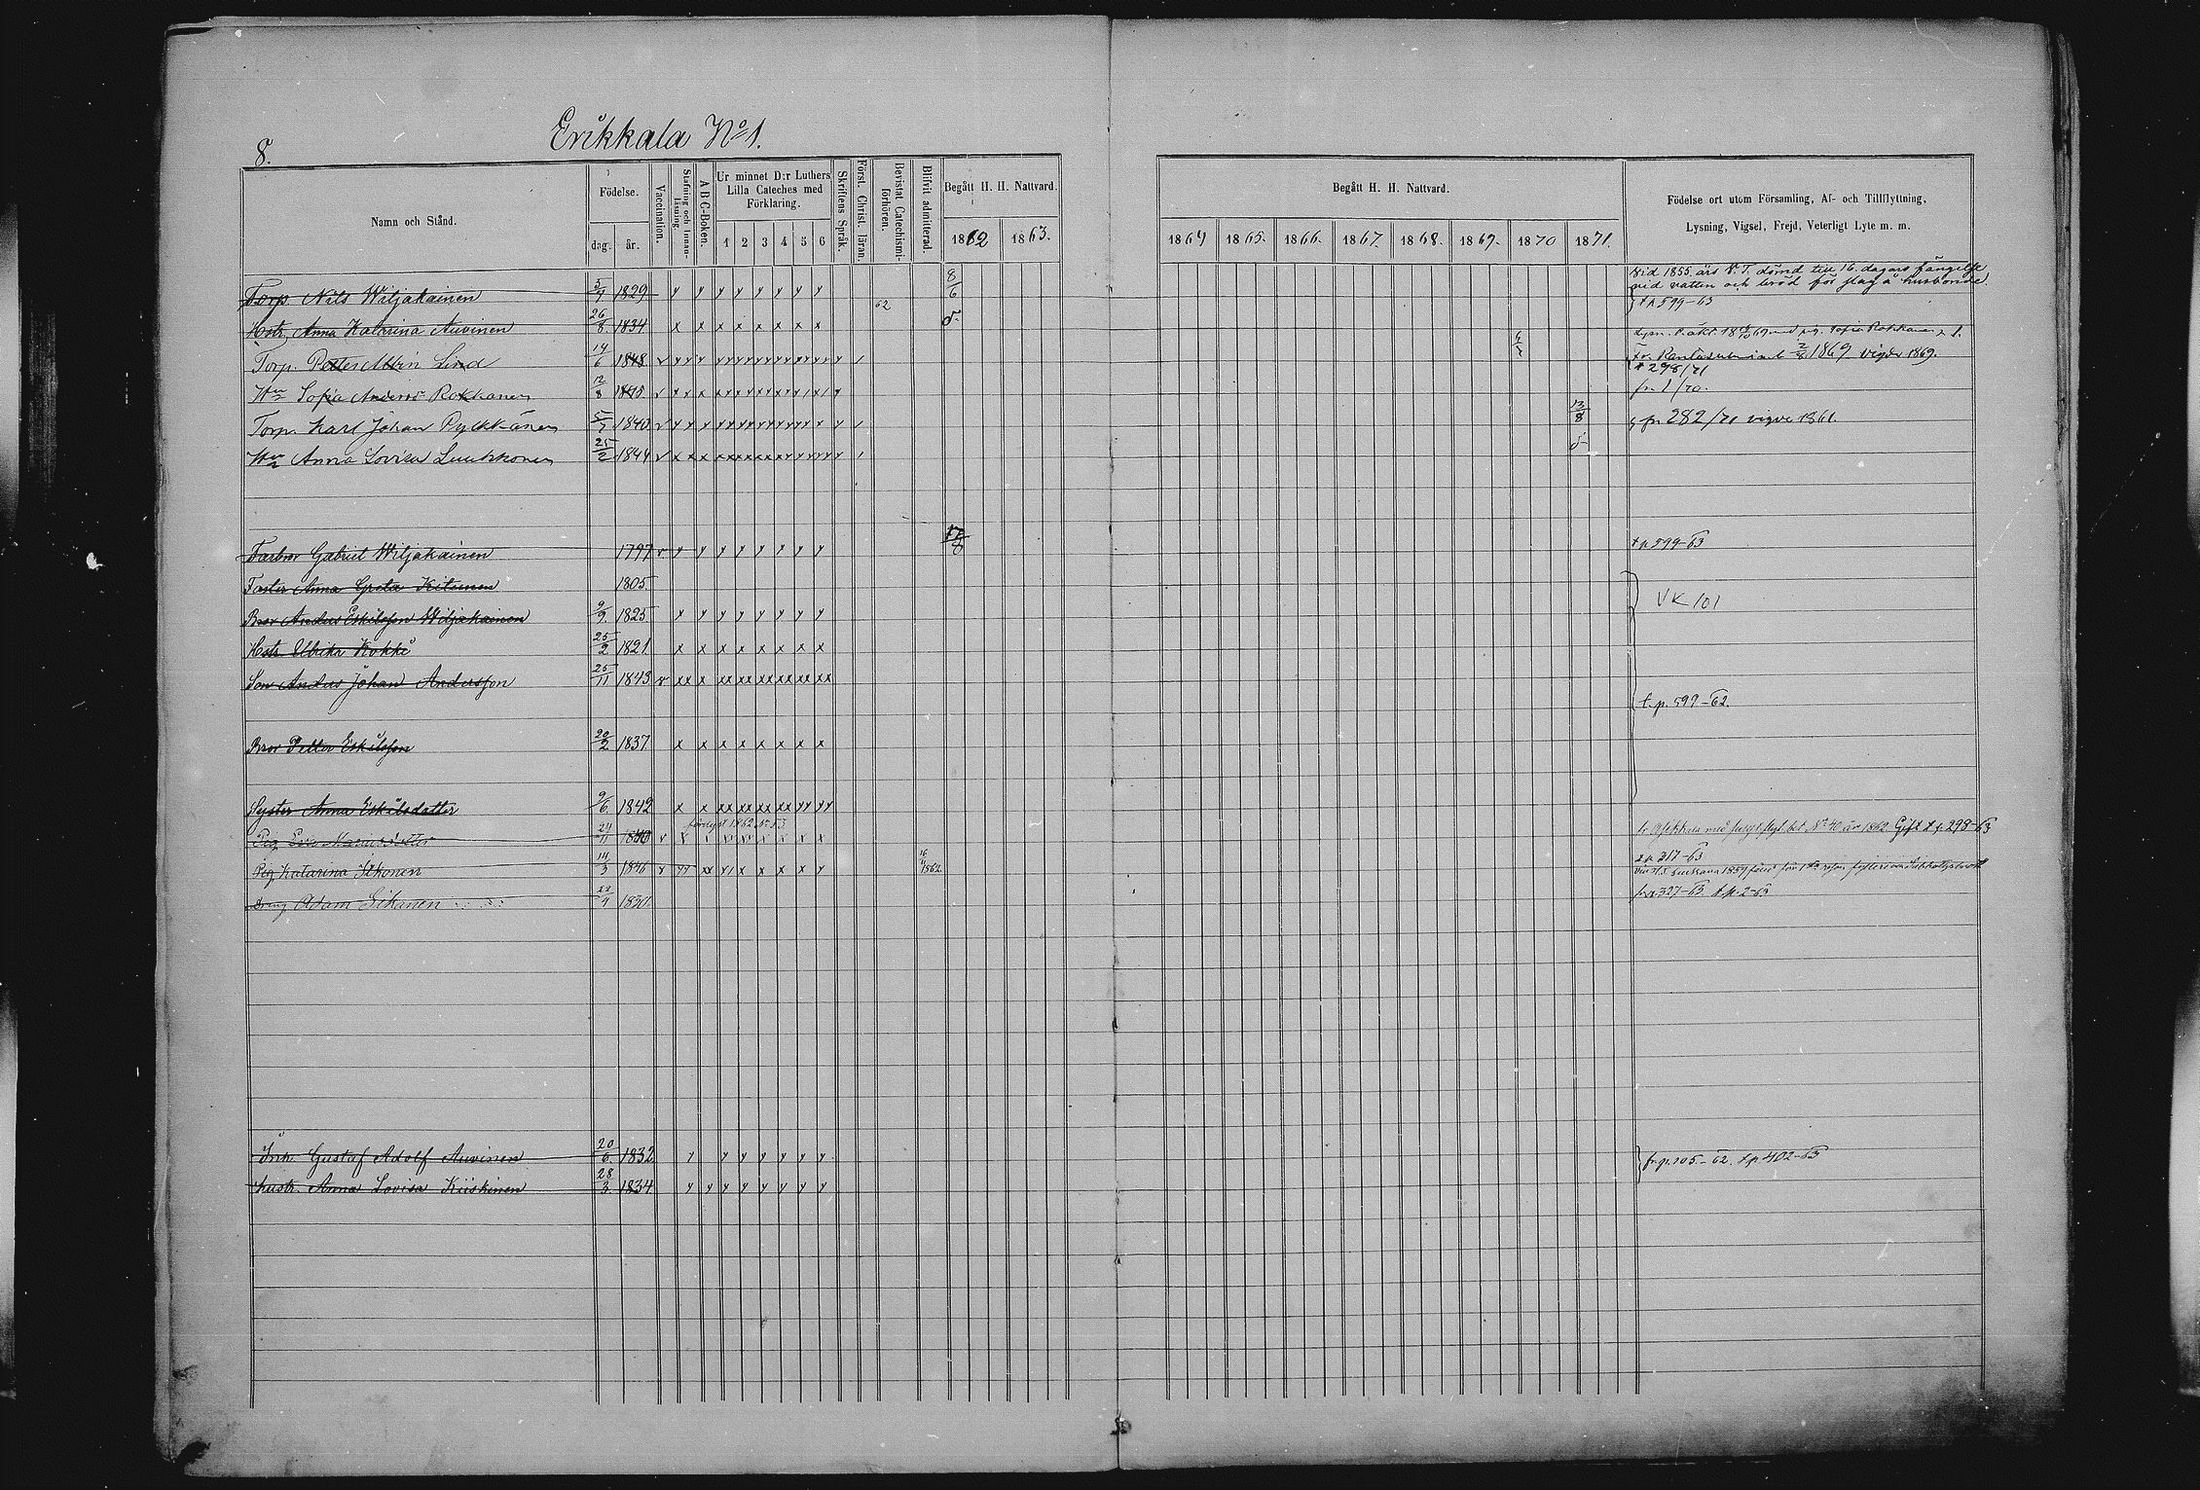 8.
Erikkala No 1.
Namn och Stånd.
Födelse.
dag.
år.
Vaccination.
Stafning och Innanläsning.
A B C-Boken.
Ur minnet D:r Luthers Lilla Cateches med Förklaring.
1 2 3 4 5 6
Skriftens Språk.
Först. Christ. läran.
Bevistat Catechismiförhören.
Blifvit admitterad.
Begått H. H. Nattvard.
1862
1863.
Begått H. H. Nattvard.
1864 1865. 1866. 1867. 1868. 1869. 1870 1871.
Födelse ort utom Församling, Af- och Tillflyttning,
Lysning, Vigsel, Frejd, Veterligt Lyte m. m.
Vid 1855 års V. T. dömd till 16. dagars fängelse
Torp. Nils Wiljakainen 5/4 1829 y y y y y y y y 62 8/6 vid vatten och bröd för slag å husbonde
t.p 599-63
Hstr. Anna Katarina Auvinen 26/8 1834 x x x x x x x x
Torp. Petter Lind 14/6 1848 1869 vigde 1869.
298/71
Hu Sofia Rokkanen 12/8 fr. 1/70.
Torp. Karl Johan Pylkkänen 5/7 1840 13/8 fr. 282/71 vigde 1861.
Hu Anna Lovisa Luukkonen 25/2 1844
Farbror Gabriel Wiljakainen 1797 v y y y y y y y y 17/8 t.p 599-63
Faster Anna Greta Kitunen 1805.
Bror Anders Eskilsson Wiljakainen 9/9. 1825 y y y y y y y y VK 101
Hstr Ulrika Kokki 25/2 1821 x x x x x x x x
Son Anders Johan Andersson 25/11 1843 v xx x xx xx xx xx xx xx
t.p. 599-62.
Bror Petter Eskilsson 20/2 1837 x x x x x x x x
Syster Anna Eskilsdotter 9/6 1842 x x xx xx xx xx yy yy
Pig. 24/11 Gift t.p. 298-63
Pig. Katarina Itkonen 14/3 1846 1862. t.p 217-63
Dräng Adam Sikanen 1830. fr.p 327-63 t.p. 2-63
Inh. Gustaf Adolf Auvinen 20/6. 1832 y y y y y y y fr.p. 105-62. t.p 402-63
Hustr. Anna Lovisa Kiiskinen 28/3. 1834 y y y y y y y y